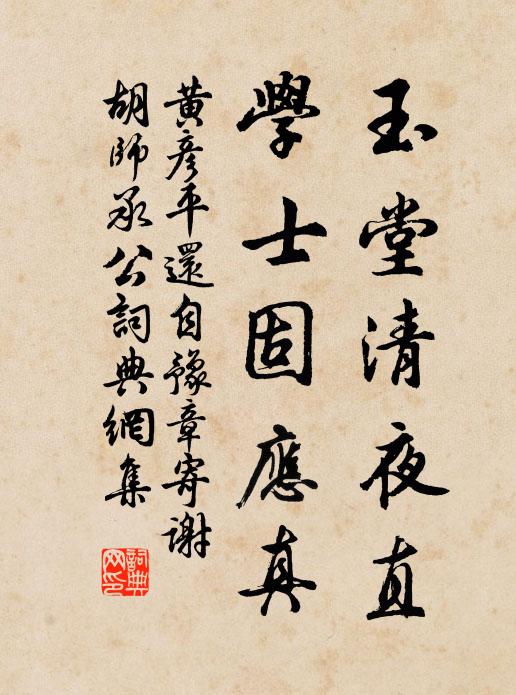 玉堂清夜直
學士固應真
黃彥平還自豫章寄謝
胡師承公詞典網集
詞典網印